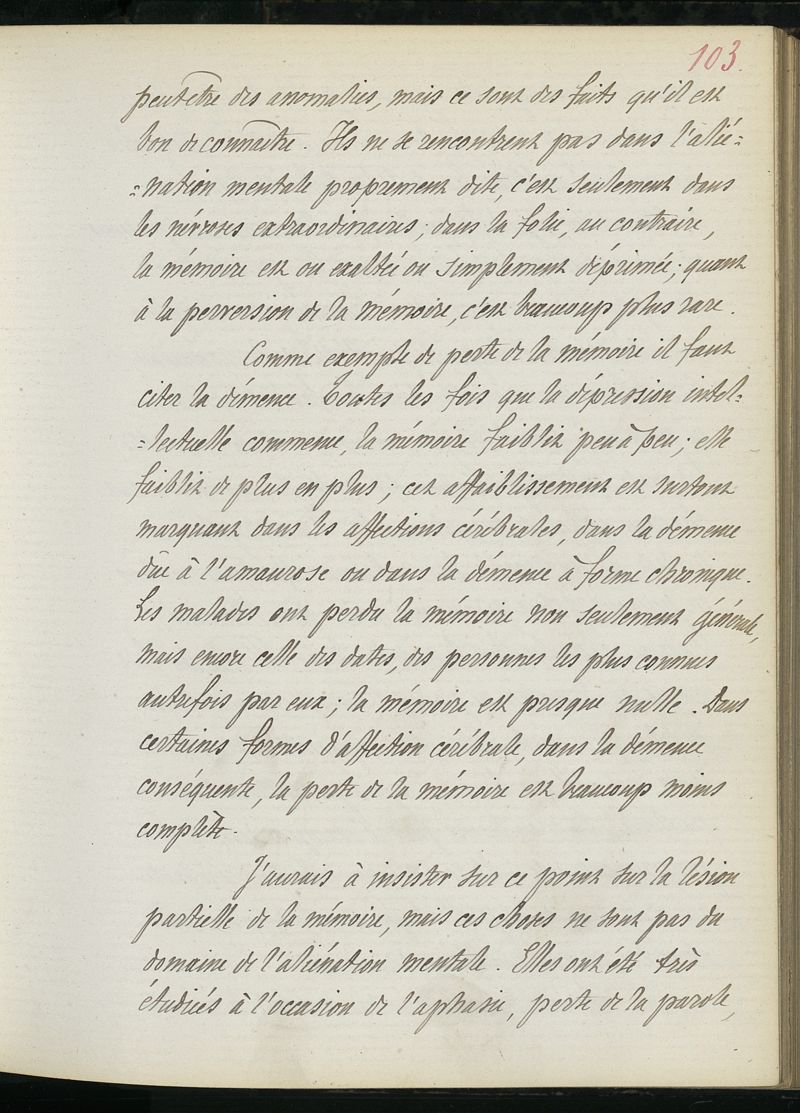 103.
peut être des anomalies, mais ce sont des faits qu'il est
bon de connaître. Ils ne se rencontrent pas dans l'alié=
=nation mentale proprement dite, c'est seulement dans
les névroses extraordinaires; dans la folie, au contraire,
la mémoire est ou exaltée ou simplement déprimée; quant
à la perversion de la mémoire, c'est beaucoup plus rare.
Comme exemple de perte de la mémoire il faut
citer la démence. Toutes les fois que la dépression intel=
=lectuelle commence, la mémoire faiblit peu à peu; elle
faiblit de plus en plus; cet affaiblissement est surtout
marquant dans les affections cérébrales, dans la démence
due à l'amaurose ou dans la démence à forme chronique.
Les malades ont perdu la mémoire non seulement générale,
mais encore celle des dates, des personnes les plus connues
autrefois par eux; la mémoire est presque nulle. Dans
certaines formes d'affection cérébrale, dans la démence
conséquente, la perte de la mémoire est beaucoup moins
complète.
J'aurais à insister sur ce point sur la lésion
partielle de la mémoire, mais ces choses ne sont pas du
domaine de l'aliénation mentale. Elles ont été très
étudiées à l'occasion de l'aphasie, perte de la parole,